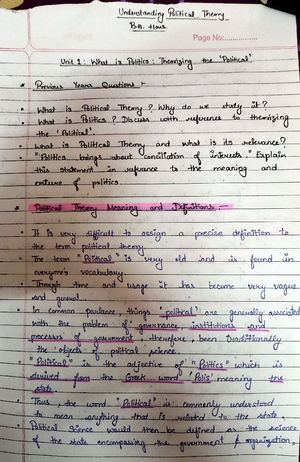 Understanding Political Theory
B.A. Hons.
Page No:
Unit 1: What is Politics: Theorizing the 'Political'
* Previous Years Questions :-
• What is Political Theory? Why do we study it?
• What is Politics? Discuss with reference to theorizing
the 'Political'.
• What is Political Theory and what is its relevance?
• "Politics brings about conciliation of interests." Explain
this statement in reference to the meaning and
nature of politics.
* Political Theory Meaning and Definitions :-
• It is very difficult to assign a precise definition to
the term political theory.
• The term "Political" is very old and is found in
everyone's vocabulary.
• Through time and usage it has become very vague
and general.
• In common parlance, things 'political' are generally associated
with the problem of governance, institutions and
processes of government, therefore, been traditionally
the objects of political science.
• "Political" is the adjective of "Politics" which is
derived from the Greek word 'Polis' meaning the
state.
• Thus, the word 'Political' is commonly understood
to mean anything that is related to the state.
• Political Science would then be defined as the science
of the state encompassing the government & organization,